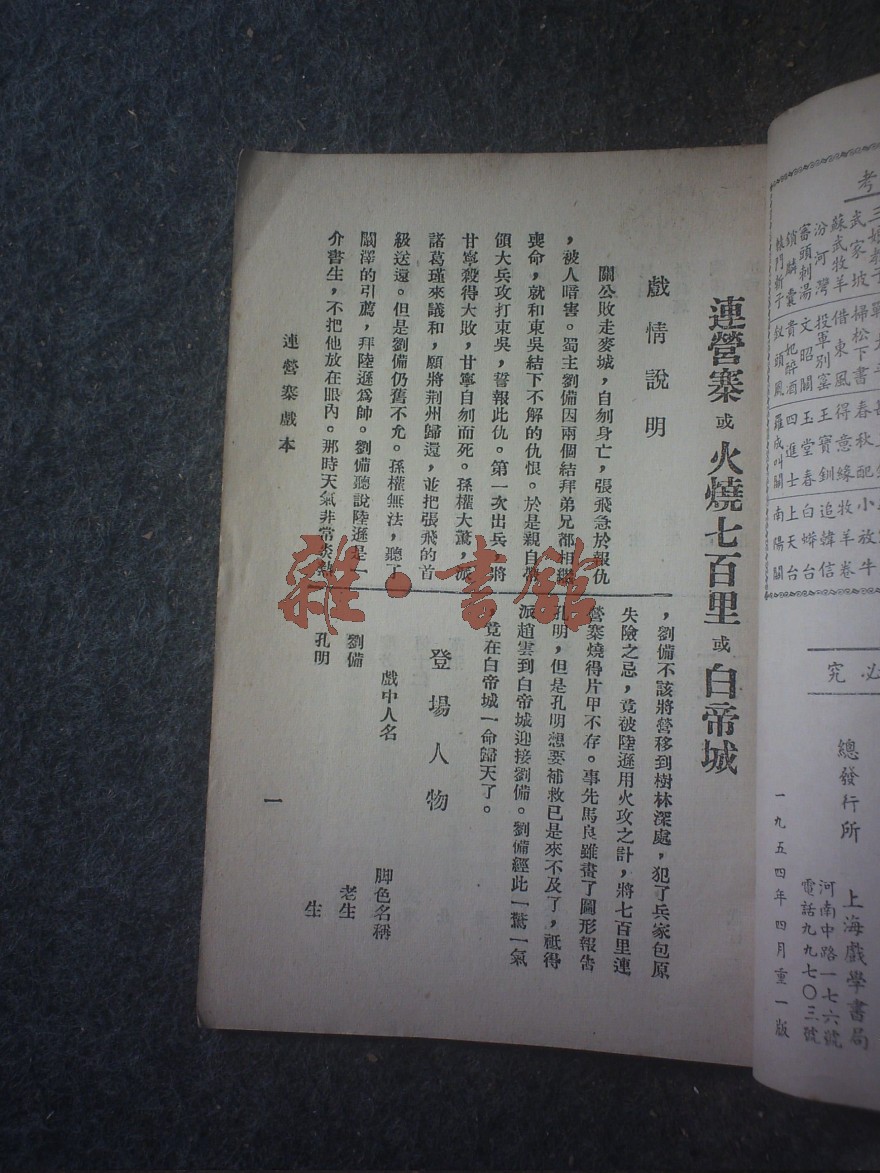 考
武家坡
蘇武牧羊
汾河灣
審頭刺湯
鎖麟囊
轅門斬子
掃松下書
借東風
投軍別窰
文昭關
貴妃醉酒
釵頭鳳
春秋配
得意緣
王寶釧
玉堂春
四進士
羅成叫關
小放牛
牧羊卷
追韓信
白蟒台
上天台
南陽關
必究
總發行所
上海戲學書局
河南中路一七六號
電話九九七〇三號
一九五四年四月重一版
連營寨或火燒七百里或白帝城
戲情說明
關公敗走麥城，自刎身亡，張飛急於報仇
，被人暗害。蜀主劉備因兩個結拜弟兄都相繼
喪命，就和東吳結下不解的仇恨。於是親自帶
領大兵攻打東吳，誓報此仇。第一次出兵，將
甘寧殺得大敗，甘寧自刎而死。孫權大驚，派
諸葛瑾來議和，願將荆州歸還，並把張飛的首
級送還。但是劉備仍舊不允。孫權無法，聽了
闞澤的引薦，拜陸遜爲帥。劉備聽說陸遜是一
介書生，不把他放在眼內。那時天氣非常炎熱
，劉備不該將營移到樹林深處，犯了兵家包原
失險之忌，竟被陸遜用火攻之計，將七百里連
營寨燒得片甲不存。事先馬良雖畫了圖形報告
孔明，但是孔明想要補救已是來不及了，祗得
派趙雲到白帝城迎接劉備。劉備經此一驚一氣
，竟在白帝城一命歸天了。
登場人物
戲中人名 脚色名稱
劉備 老生
孔明 生
連營寨戲本 一
雜·書館